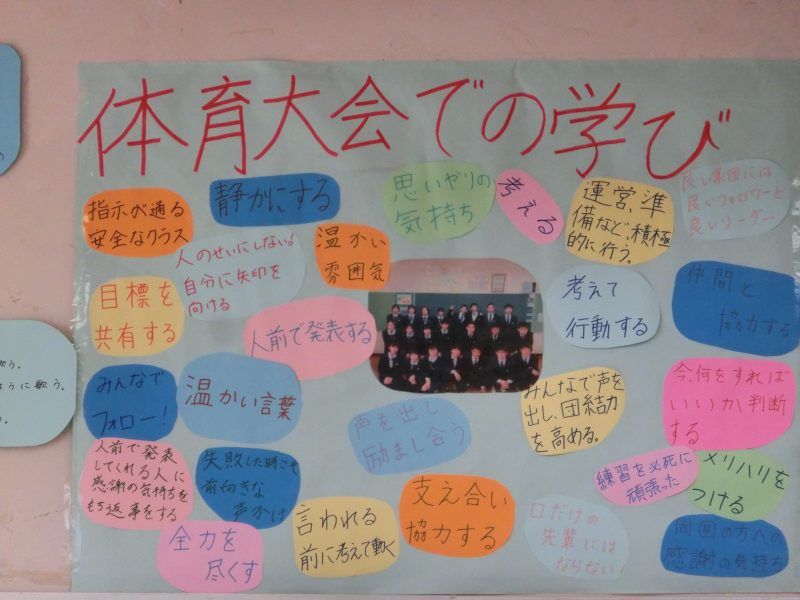 体育大会での学び
指示が通る
安全なクラス
静かにする
思いやりの
気持ち
考える
運営、準
備など、積極
的に行う。
良い集団には
良いフォロワーと
良いリーダー
人のせいにしない!
自分に矢印を
向ける
温かい
雰囲気
目標を
共有する
人前で発表する
考えて
行動する
仲間と
協力する
みんなで
フォロー!
温かい言葉
声を出し
励まし合う
みんなで声を
出し、団結力
を高める。
今、何をすれば
いいか判断
する
人前で発表
してくれる人に
感謝の気持ちを
もち返事をする
失敗した時こそ
前向きな
声かけ
言われる
前に考えて働く
支え合い
協力する
練習を必死に
頑張った
メリハリを
つける
全力を
尽くす
口だけの
先輩には
ならない!
周囲の方への
感謝の気持ち
歌う。
ように歌う。